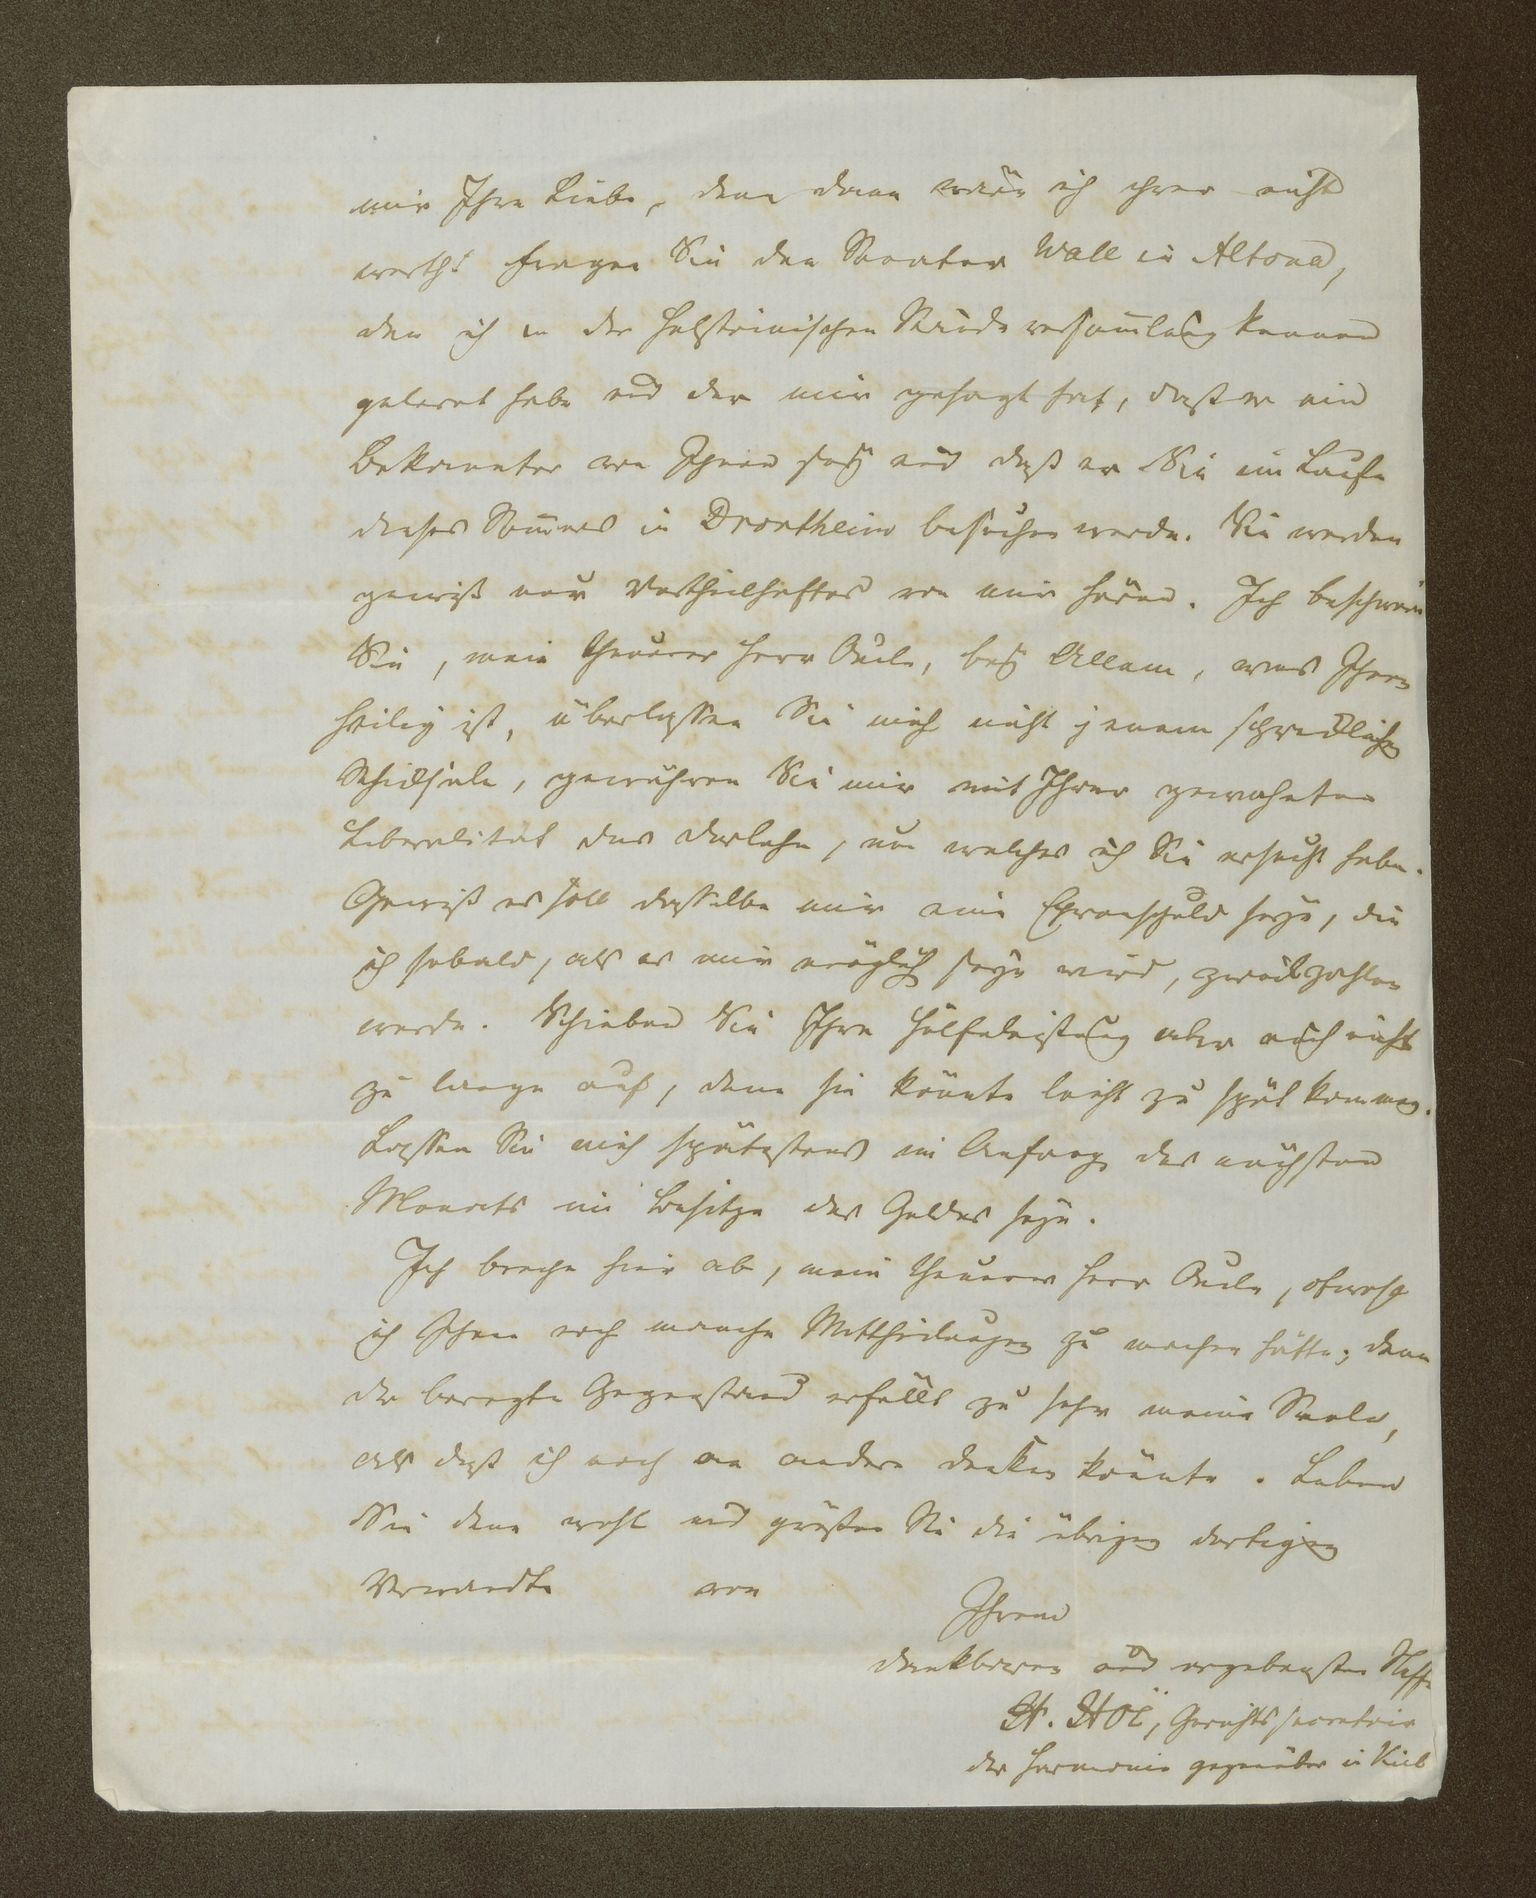 mir Ihre Liebe, denn dann wäre ich ihrer nicht
werth! Fragen Sie den Senator Wall in Altona,
den ich in der holsteinischen Ständeversammlung kennen
gelernt habe und der mir gesagt hat, daß er ein
Bekannter von Ihnen sey und daß er Sie im Laufe
dieses Sommers in Drontheim besuchen werde. Sie werden
gewiß nur Vortheilhaftes von mir hören. Ich beschwöre
Sie, mein theurer Herr Onkle, bey Allem, was Ihnen
heilig ist, überlassen Sie mich nicht jenem schrecklichen
Schicksale, gewähren Sie mir mit Ihrer gewohnten
Liberalität das Darlehn, um welches ich Sie ersucht habe.
Gewiß es soll dasselbe mir eine Ehrenschuld seyn, die
ich sobald, als es mir möglich seyn wird, zurückzahlen
werde. Schieben Sie Ihre Hülfeleistung aber auch nicht
zu lange auf, denn sie könnte leicht zu spät kommen.
Lassen Sie mich spätestens im Anfang des nächsten
Monats im Besitze des Geldes seyn.
Ich breche hier ab, mein theurer Herr Onkle, obwohl
ich Ihnen noch manche Mittheilungen zu machen hätte; denn
der beregte Gegenstand erfüllt zu sehr meine Seele,
als daß ich noch an andere denken könnte. Leben
Sie denn wohl und grüßen Sie die übrigen dortigen
Verwandte von
Ihrem
dankbaren und ergebensten Neffe
H. Hoë, Gerichtssecretair
der Harmonie gegenüber in Kiel